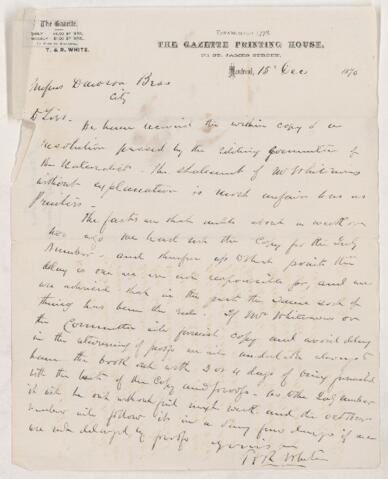 The Gazette.
T. & R. WHITE.
ESTABLISHED 1778
THE GAZETTE PRINTING HOUSE,
ST. JAMES STREET,
Montreal, 15 Dec 1870
Messrs Dawson Bros
City
D Sirs
We have received the within copy of a
resolution passed by the Editing Committee of
the Naturalist. The statement of Mr Whiteaves
without explanation is most unfair to us as
Printers.
The facts are that until about a week or
ago we had not the copy for the July
number - and therefore up to that point the
delay is one we are not responsible for, and we
are advised that in the past the same sort of
thing has been the rule. If Mr Whiteaves or
the Committee will furnish copy and avoid delay
in the returning of proofs we will undertake always to
have the book out with 3 or 4 days of being furnished
with the last of the copy and proofs. As to the July number
it will be out without fail next week and the October
number will follow it in a very few days if we
are not delayed by proofs
Yours
T & R White